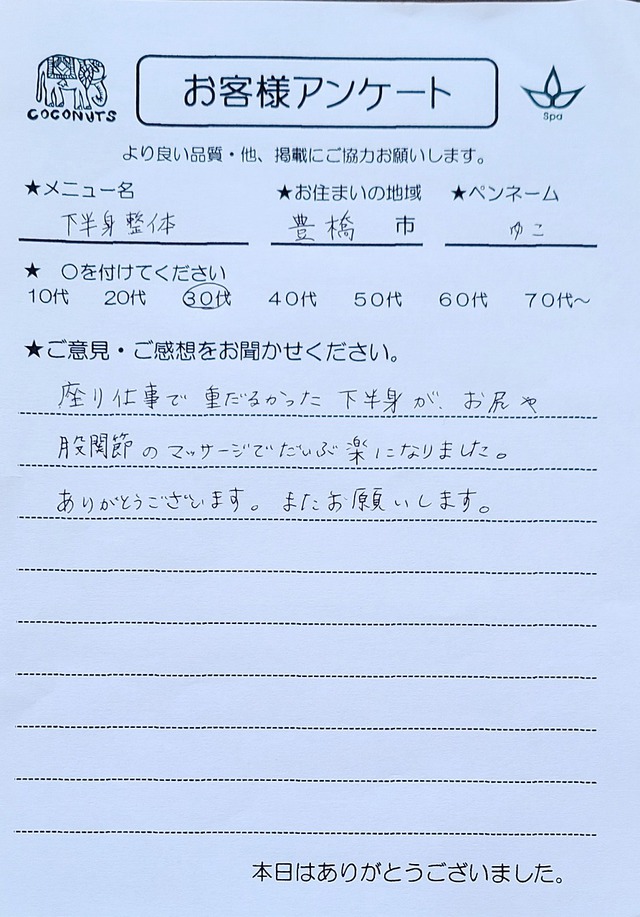 COCONUTS
お客様アンケート
Spa
より良い品質・他、掲載にご協力お願いします。
★メニュー名 ★お住まいの地域 ★ペンネーム
下半身整体 豊橋 市 ゆこ
★ ○を付けてください
10代 20代 30代 40代 50代 60代 70代~
★ご意見・ご感想をお聞かせください。
座り仕事で重だるかった下半身が、お尻や
股関節のマッサージでだいぶ楽になりました。
ありがとうございます。またお願いします。
本日はありがとうございました。